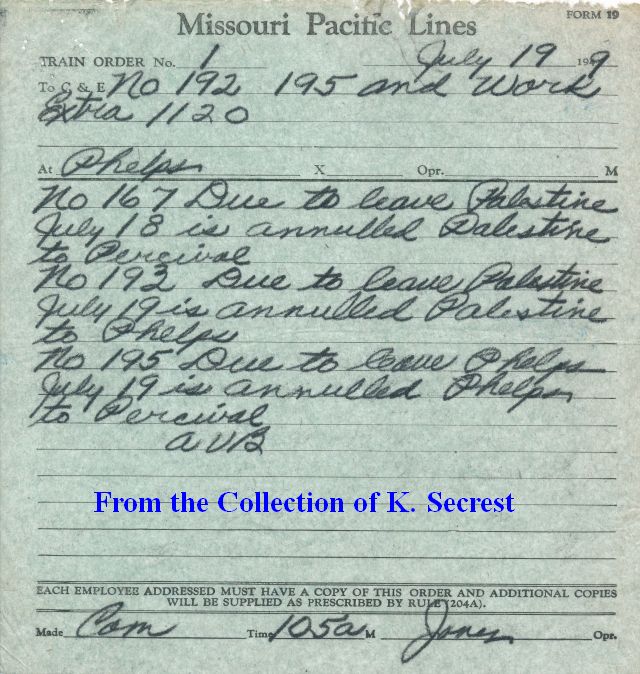 Missouri Pacific Lines
FORM 19
TRAIN ORDER No. 1 July 19 199
To C & E No 192 195 and Work
Extra 1120
At Phelps X Opr. M
No 167 Due to leave Palestine
July 18 is annulled Palestine
to Percival
No 193 Due to leave Palestine
July 19 is annulled Palestine
to Phelps
No 195 Due to leave Phelps
July 19 is annulled Phelps
to Percival
A V B
From the Collection of K. Secrest
EACH EMPLOYEE ADDRESSED MUST HAVE A COPY OF THIS ORDER AND ADDITIONAL COPIES
WILL BE SUPPLIED AS PRESCRIBED BY RULE (204A).
Made Com Time 105a M Jones Opr.